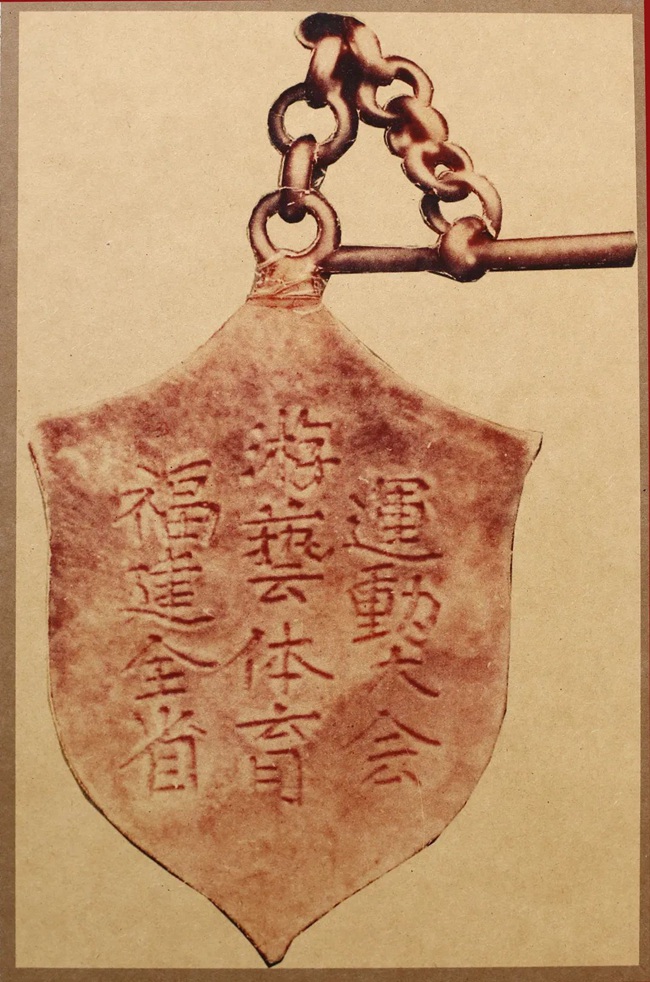 福建全省
游藝体育
運動大会